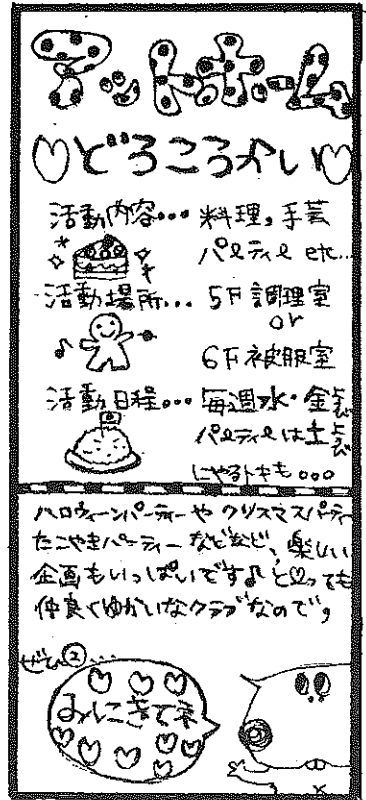 アットホーム
♡どうこうかい♡
活動内容… 料理,手芸
パーティー etc…
活動場所… 5F調理室
or
6F被服室
活動日程… 毎週水・金ようび
パーティーは土ようび
にやるトキも。。。
ハロウィーンパーティーや クリスマスパーティー
たこやきパーティーなどなど、楽しい
企画もいっぱいです♪ と♡っても
仲良くゆかいなクラブなので,
ぜひ②…
みにきてネ